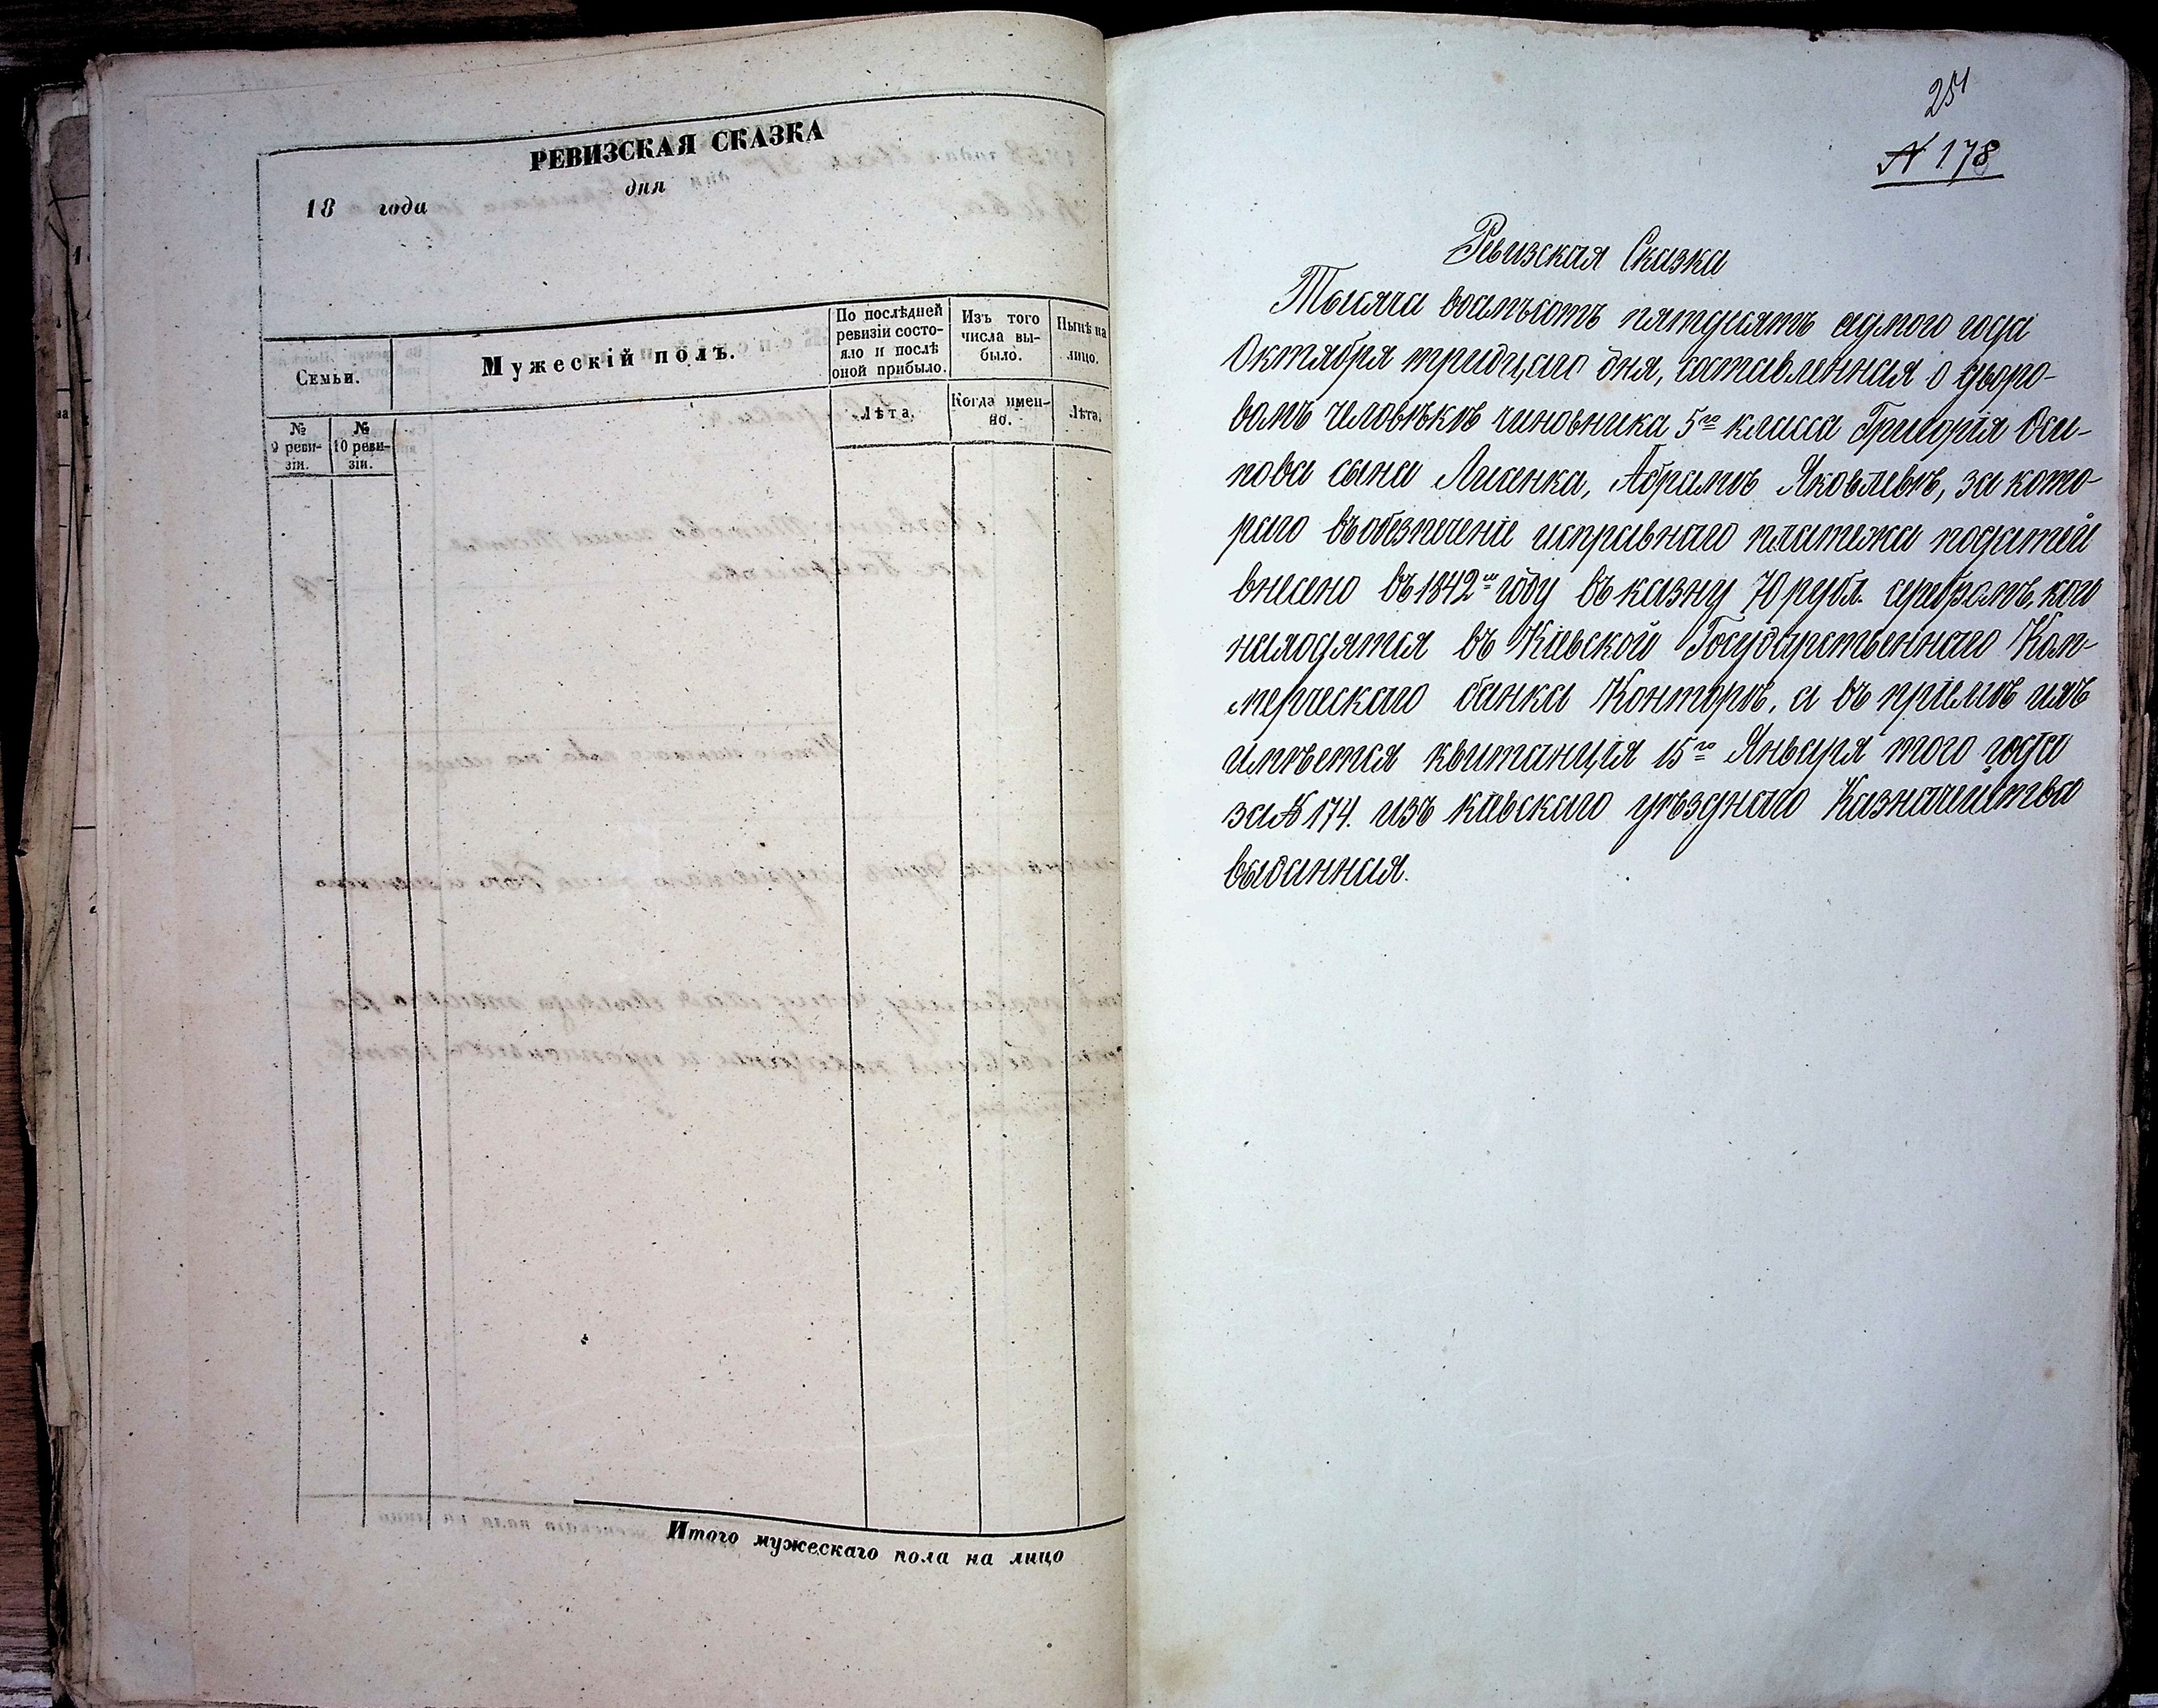 РЕВИЗСКАЯ СКАЗКА
дня
18 года
Семьи.
Мужескій полъ.
По послѣдней ревизіи состо-
яло и послѣ
оной прибыло.
Изъ того
числа вы-
было.
Нынѣ на
лицо.
Лѣта.
Когда имен-
но.
Лѣта.
№
9 реви-
зіи.
№
10 реви-
зіи.
Итого мужескаго пола на лицо
251
№ 178
Ревизская Сказка
Тысяча восемьсотъ пятдесятъ седмого года
Октября тридцаго дня, составленная о дворо-
вомъ человѣкѣ чиновника 5го класса Григорія Оси-
пова сына Лисенка, Абрамѣ Яковлевѣ, за кото-
раго въ обезпеченіе исправнаго платежа податей
внесено въ 1842м году въ казну 70 рубл. серебромъ, кои
находятся въ Кіевской Государственнаго Ком-
мерческаго банка Конторѣ, а въ пріемѣ ихъ
имѣется квитанція 15го Января того года
за № 174. изъ кіевскаго уѣзднаго Казначейства
выданная.